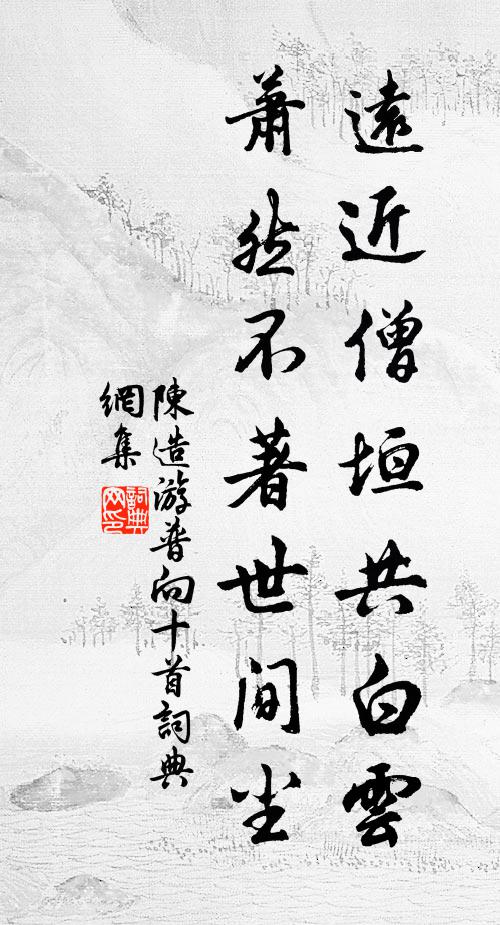 遠近僧垣共白雲
蕭然不著世間坐
陳造游普向十首詞典
網集
詞典
网印